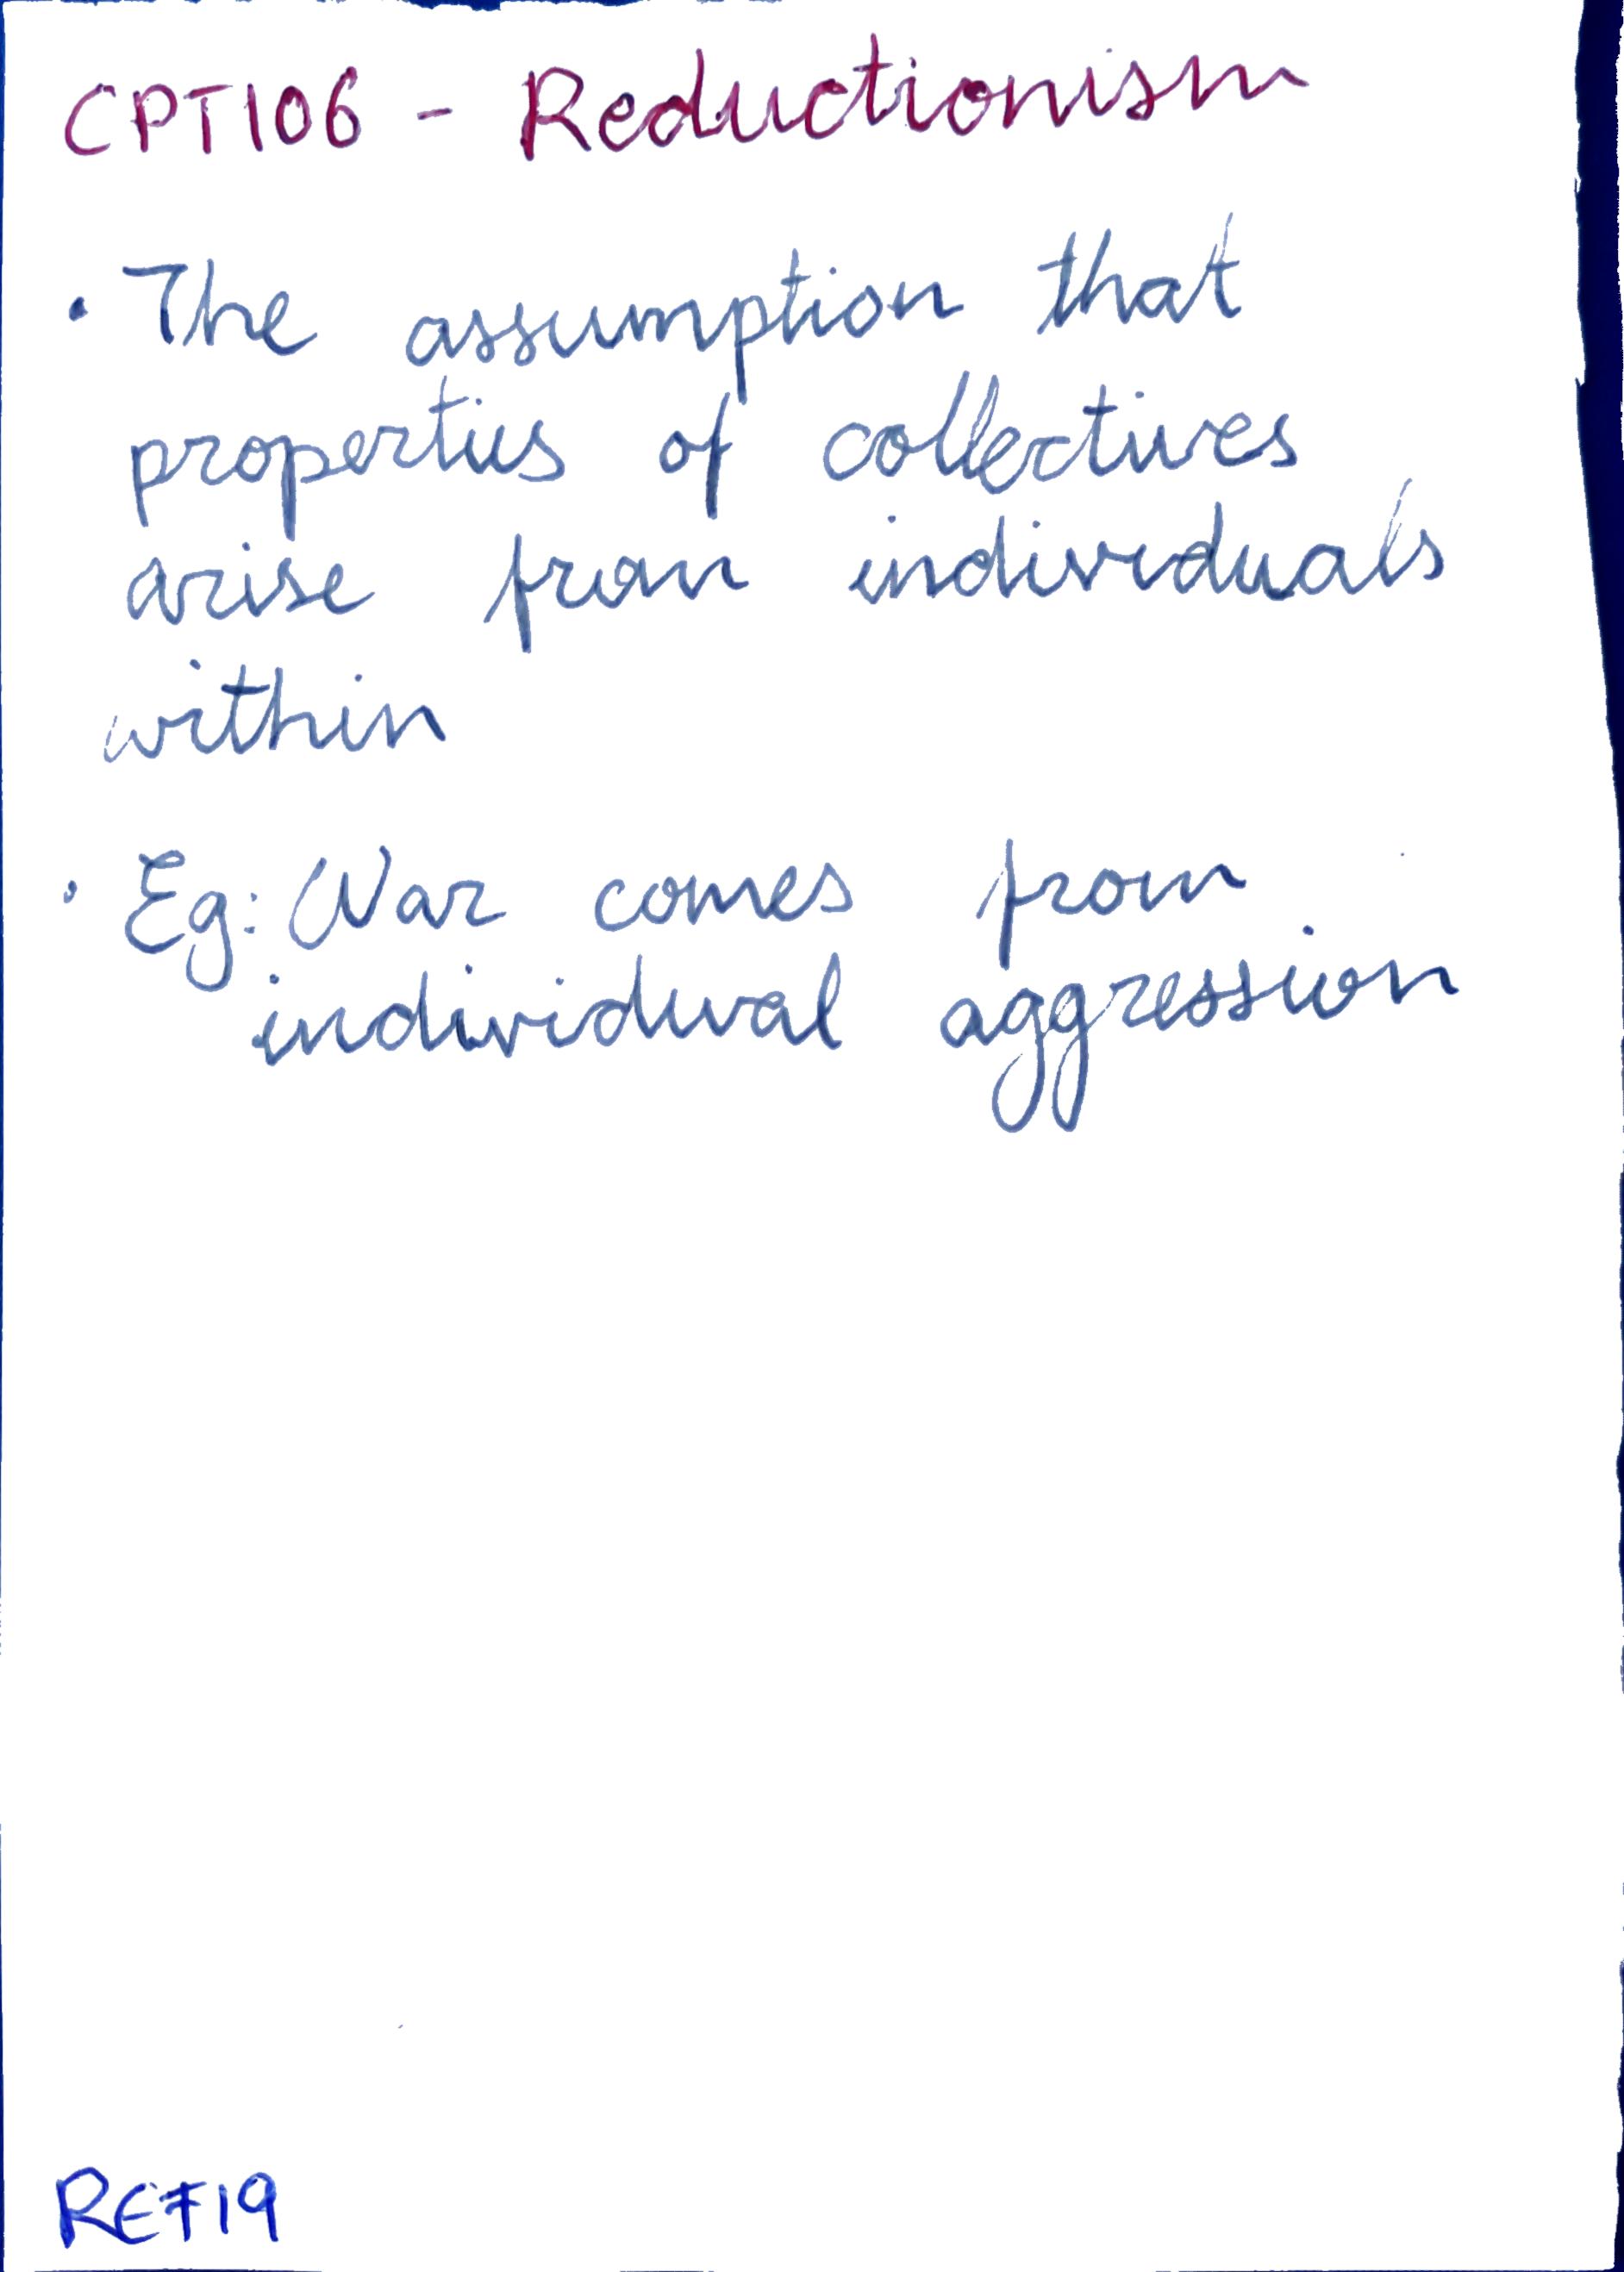 CPT106 - Reductionism
• The assumption that
properties of collectives
arise from individuals
within
• Eg: War comes from
individual aggression
REF19